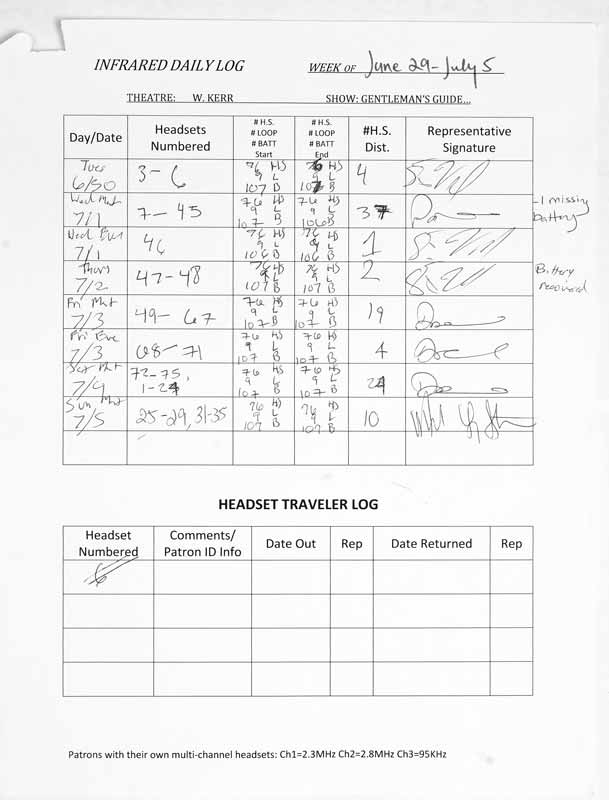 INFRARED DAILY LOG WEEK OF June 29 - July 5
THEATRE: W. KERR SHOW: GENTLEMAN'S GUIDE...
Day/Date Headsets Numbered # H.S. # LOOP # BATT Start # H.S. # LOOP # BATT End #H.S. Dist. Representative Signature
Tues 6/30 3-6 76 HS 9 L 107 B 76 HS 9 L 107 B 4
Wed Mat 7/1 7-45 76 HS 9 L 107 B 76 HS 9 L 106 B 37 -1 missing battery
Wed Eve 7/1 46 76 HS 9 L 106 B 76 HS 9 L 106 B 1
Thurs 7/2 47-48 76 HS 9 L 107 B 76 HS 9 L 107 B 2 Battery received
Fri Mat 7/3 49-67 76 HS 9 L 107 B 76 HS 9 L 107 B 19
Fri Eve 7/3 68-71 76 HS 9 L 107 B 76 HS 9 L 107 B 4
Sat Mat 7/4 72-75, 1-24 76 HS 9 L 107 B 76 HS 9 L 107 B
Sun Mat 7/5 25-29, 31-35 76 HS 9 L 107 B 76 HS 9 L 107 B 10
HEADSET TRAVELER LOG
Headset Numbered Comments/ Patron ID Info Date Out Rep Date Returned Rep
Patrons with their own multi-channel headsets: Ch1=2.3MHz Ch2=2.8MHz Ch3=95KHz